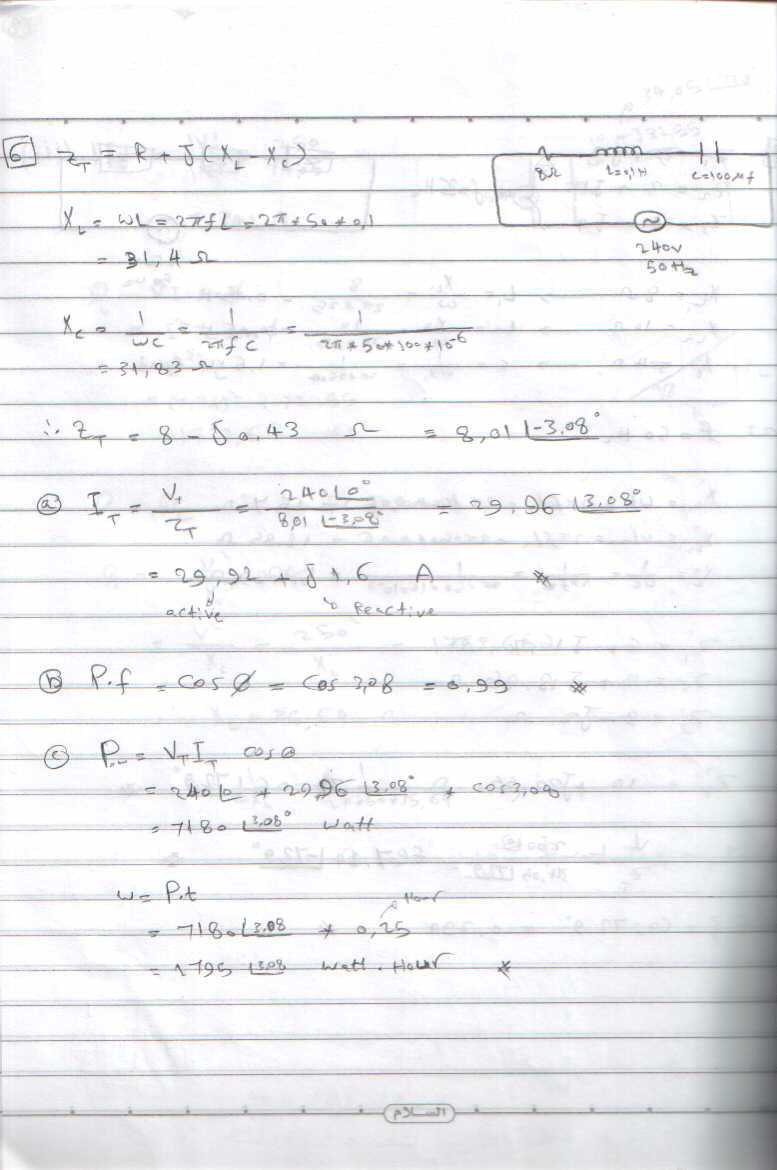 6 Z_T = R + J(X_L - X_C)
8Ω L=0,1H C=100μf
240v
50Hz
X_L = wL = 2πfL = 2π*50*0,1
= 31,4 Ω
X_C = 1/wC = 1/2πfC = 1/2π*50*100*10^-6
= 31,83 Ω
∴ Z_T = 8 - J0.43 Ω = 8,01 ∠-3,08°
ⓐ I_T = V_T/Z_T = 240∠0°/8,01∠-3,08° = 29.96 ∠3,08°
= 29,92 + J1,6 A *
active Reactive
ⓑ P.f = cos Ø = cos 3,08 = 0,99 *
ⓒ = V_T I_T cos θ
= 240∠0 * 29,96 ∠3,08° * cos 3,08
= 7180 ∠3,08° watt
w = P.t
= 7180∠3,08 * 0,25 Hour
= 1795 ∠3,08 watt. Hour *